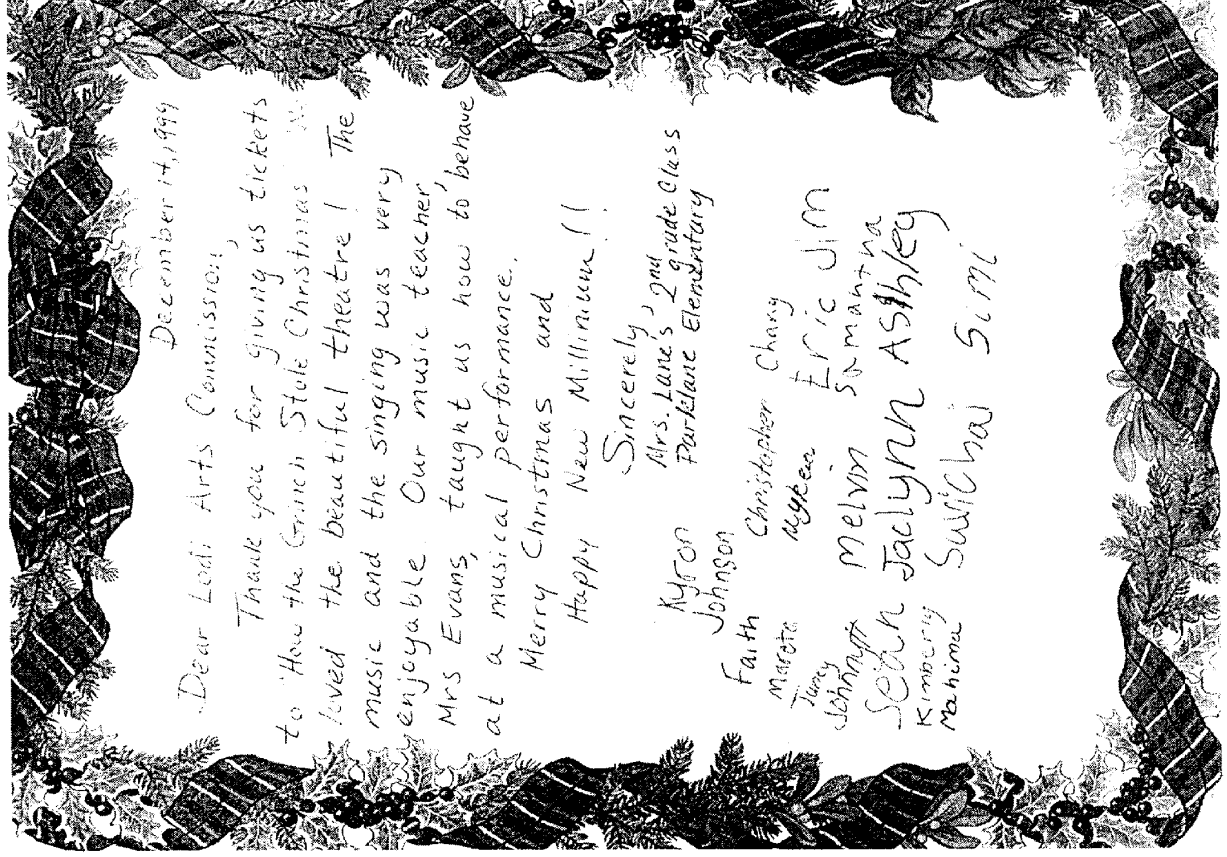 December 14, 1999
Dear Lodi Arts Commission,
Thank you for giving us tickets
to "How the Grinch Stole Christmas
loved the beautiful theatre! The
music and the singing was very
enjoyable. Our music teacher,
Mrs Evans, taught us how to behave
at a musical performance.
Merry Christmas and
Happy New Millinium!!
Sincerely,
Mrs. Lane's 2nd grade Class
Parklane Elementary
Kyron
Johnson
Faith Christopher Chang
Eric Jim
Melvin Samantha
Sean Jaclynn Ashley
Kimberly
Mahima Simi